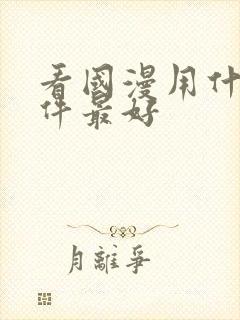 看國漫用什
件最好
月離爭